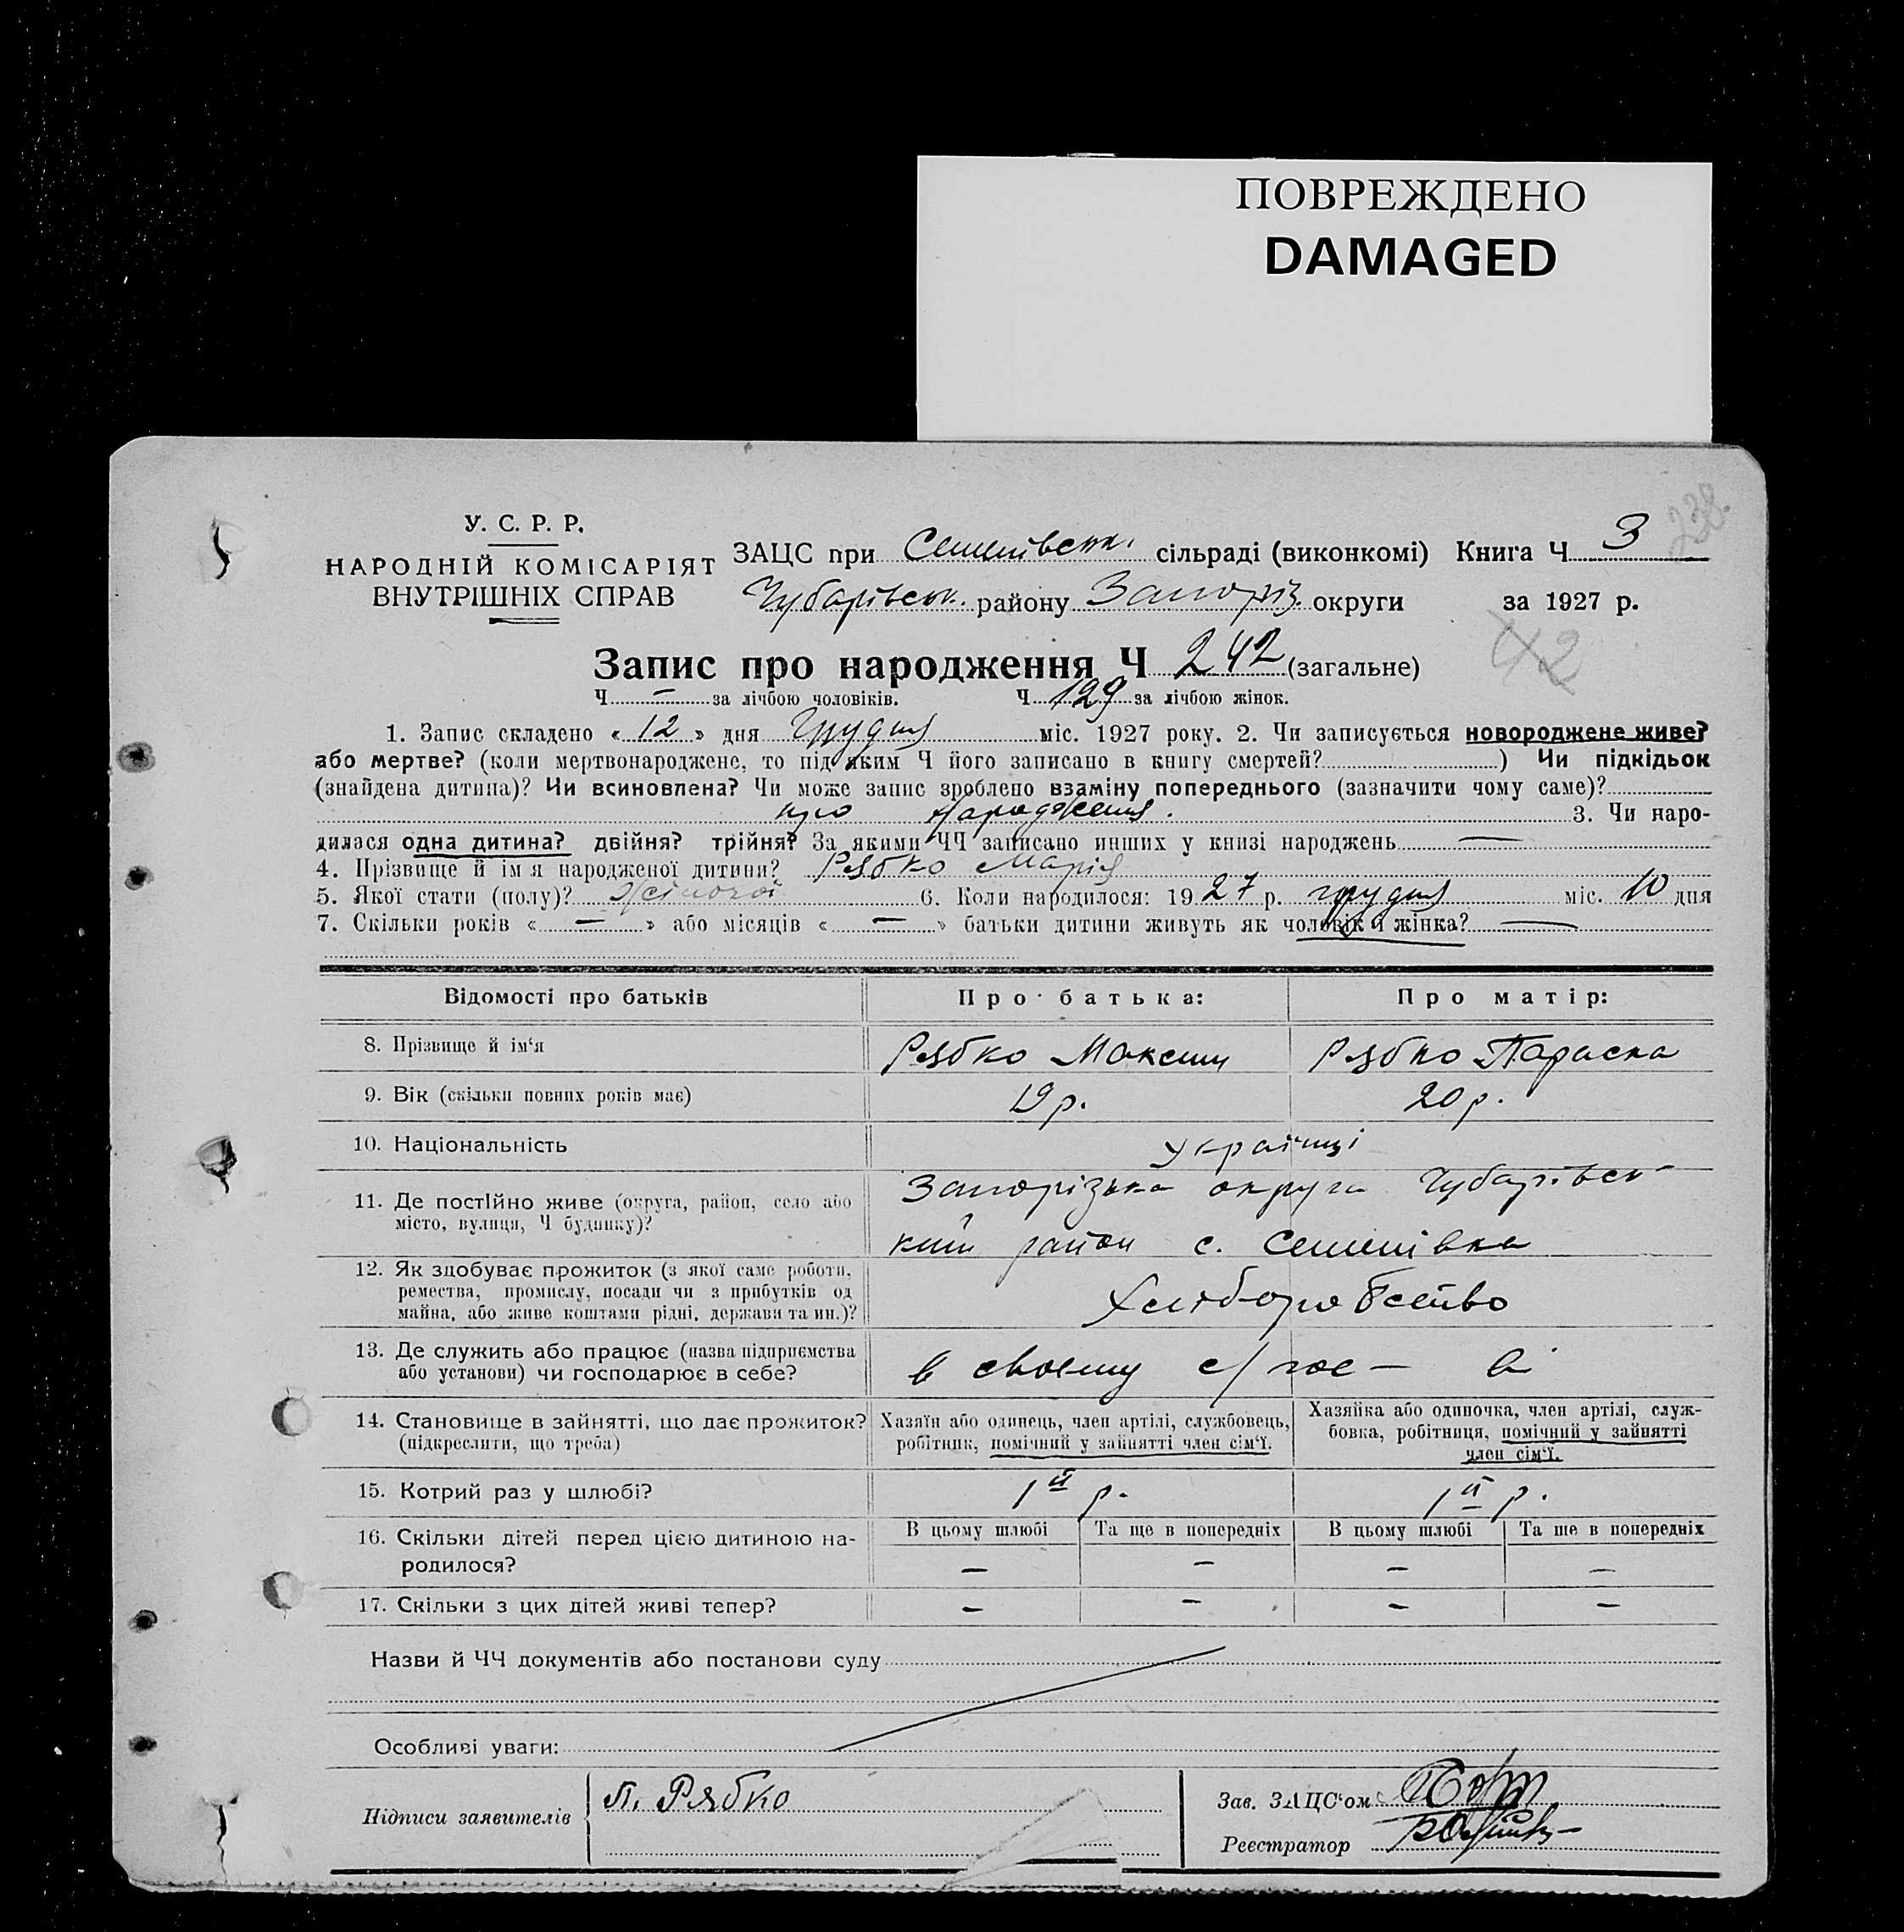 ПОВРЕЖДЕНО
DAMAGED
238.
У. С. Р. Р.
НАРОДНІЙ КОМІСАРІЯТ
ВНУТРІШНІХ СПРАВ
ЗАЦС при Семенівськ. сільраді (виконкомі) Книга Ч 3
Чубарівськ. району Запоріз. округи за 1927 р.
42
Запис про народження Ч 242 (загальне)
Ч — за лічбою чоловіків. Ч 129 за лічбою жінок.
1. Запис складено « 12 » дня грудня міс. 1927 року. 2. Чи записується новороджене живе?
або мертве? (коли мертвонароджене, то під яким Ч його записано в книгу смертей? ) Чи підкідьок
(знайдена дитина)? Чи всиновлена? Чи може запис зроблено взаміну попереднього (зазначити чому саме)?
про народження. 3. Чи наро-
дилася одна дитина? двійня? трійня? За якими ЧЧ записано инших у книзі народжень —
4. Прізвище й ім я народженої дитини? Рябко Марія
5. Якої стати (полу)? жіночої 6. Коли народилося: 1927 р. грудня міс. 10 дня
7. Скільки років « — » або місяців « — » батьки дитини живуть як чоловік й жінка? —
Відомості про батьків Про батька: Про матір:
8. Прізвище й ім‘я Рябко Максим Рябко Параска
9. Вік (скільки повних років має) 19 р. 20 р.
10. Національність Українці
11. Де постійно живе (округа, район, село або Запорізька округа Чубарівсь-
місто, вулиця, Ч будинку)? кий район с. Семенівка
12. Як здобуває прожиток (з якої саме роботи,
ремества, промислу, посади чи з прибутків од Хліборобство
майна, або живе коштами рідні, держави та ин.)?
13. Де служить або працює (назва підприємства
або установи) чи господарює в себе? в своєму с/гос — ві
14. Становище в зайнятті, що дає прожиток? Хазяїн або одинець, член артілі, службовець, Хазяйка або одиночка, член артілі, служ-
(підкреслити, що треба) робітник, помічний у зайнятті член сім‘ї. бовка, робітниця, помічний у зайнятті
член сім‘ї.
15. Котрий раз у шлюбі? 1й р. 1й р.
16. Скільки дітей перед цією дитиною на- В цьому шлюбі Та ще в попередніх В цьому шлюбі Та ще в попередніх
родилося? — — — —
17. Скільки з цих дітей живі тепер? — — — —
Назви й ЧЧ документів або постанови суду
Особливі уваги:
Підписи заявителів п. Рябко Зав. ЗАЦС‘ом
Реєстратор